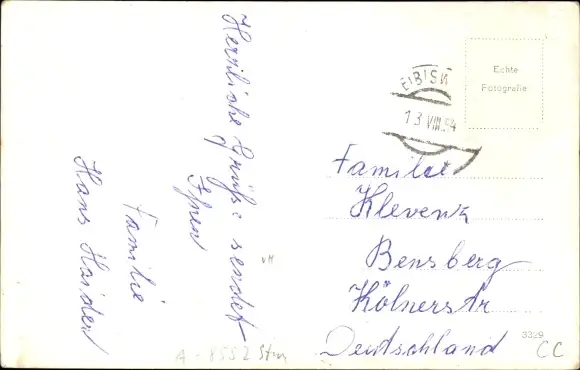 Herzliche Grüße sendet
Ihnen
Familie
Hans Haider
Echte
Fotografie
EIBISW
13 VIII. 54
Familie
Klevenz
Bensberg
Kölnerstr
Deutschland
3329
CC
A-8552